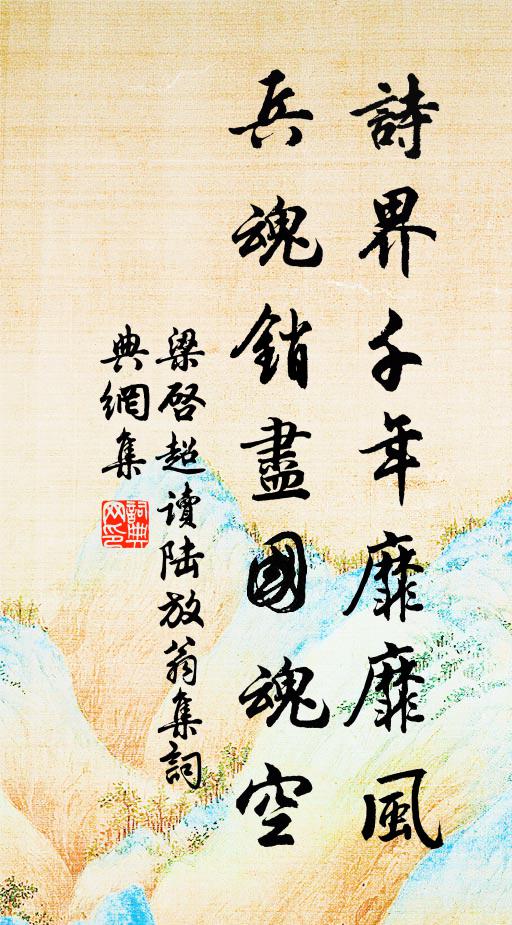 詩界千年靡靡風
兵魂銷盡國魂空
梁啓超讀陸放翁集詞
典網集
詞典網印